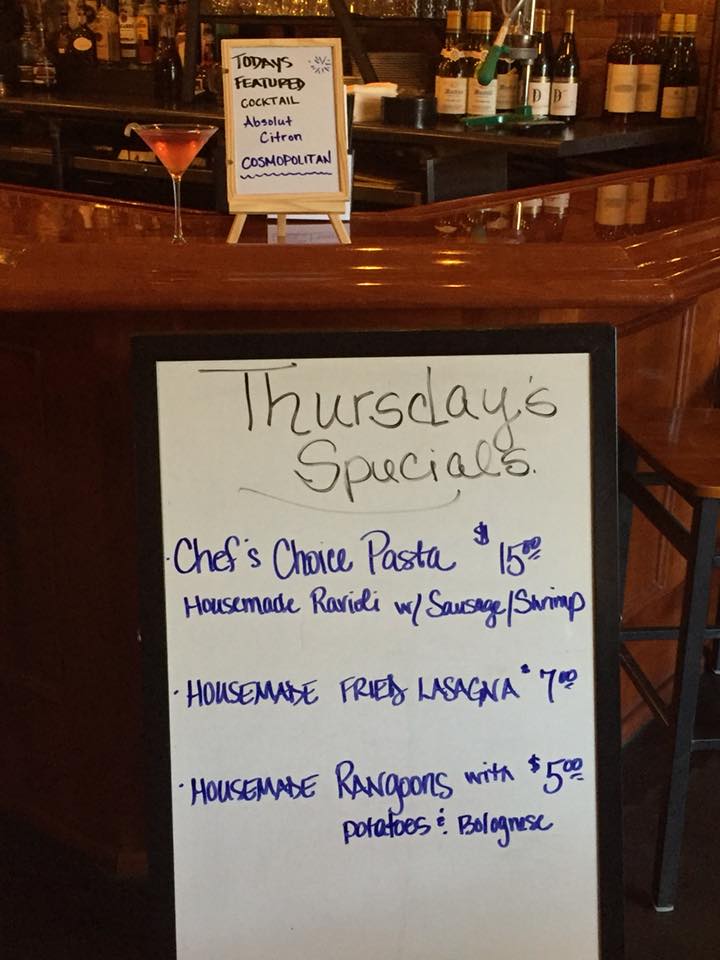 TODAYS
FEATURED
COCKTAIL
Absolut
Citron
COSMOPOLITAN
Thursday's
Specials.
· Chef's Choice Pasta $15.00
Housemade Ravioli w/ Sausage/Shrimp
· HOUSEMADE FRIED LASAGNA $7.00
· HOUSEMADE RANGOONS with $5.00
potatoes & Bolognese